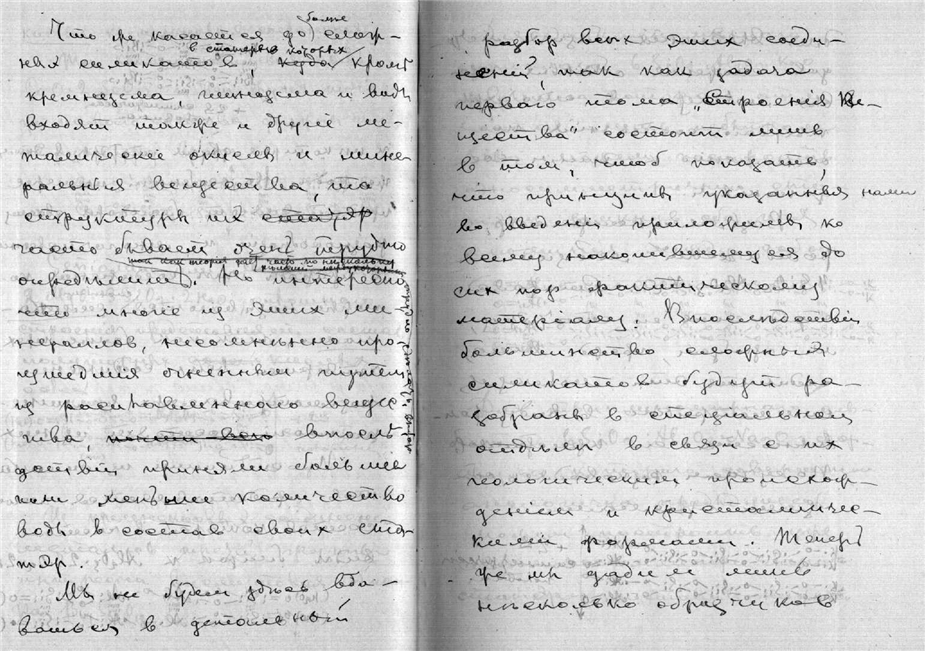 Что же касается до более слож-
ных силикатов, в статеры которых кроме
кремнезема, глинозема и воды
входят также и другие ме-
таллические окислы и мине-
ральныя вещества, то
структуры их статэр
часто бывает очень трудно
определить. Но интересно
что многие из этих ми-
нераллов, несомненно про-
изшедшия огненным путем
из расплавленного веще
ства, почти всего впослѣ
дствіи приняли большее
или меньшее количество
воды в состав своих ста-
тэр.
Мы не будем здѣсь вда-
ваться в детальный
разбор всѣх этих соеди-
нений, так как задача
перваго тома „Строения Ве-
щества" состоит лишь
в том, чтоб показать,
что принцип указанныя нами
во введении приложимы ко
всему накопившемуся до
сих пор фактическому
матерiалу. Впослѣдствiи
большинство сложных
силикатов будут ра-
зобраны в специальном
отдѣлѣ в связи с их
геологическим происхож-
дением и кристалличес-
кими формами. Теперь
же мы дадим лишь
нѣсколько образчиков